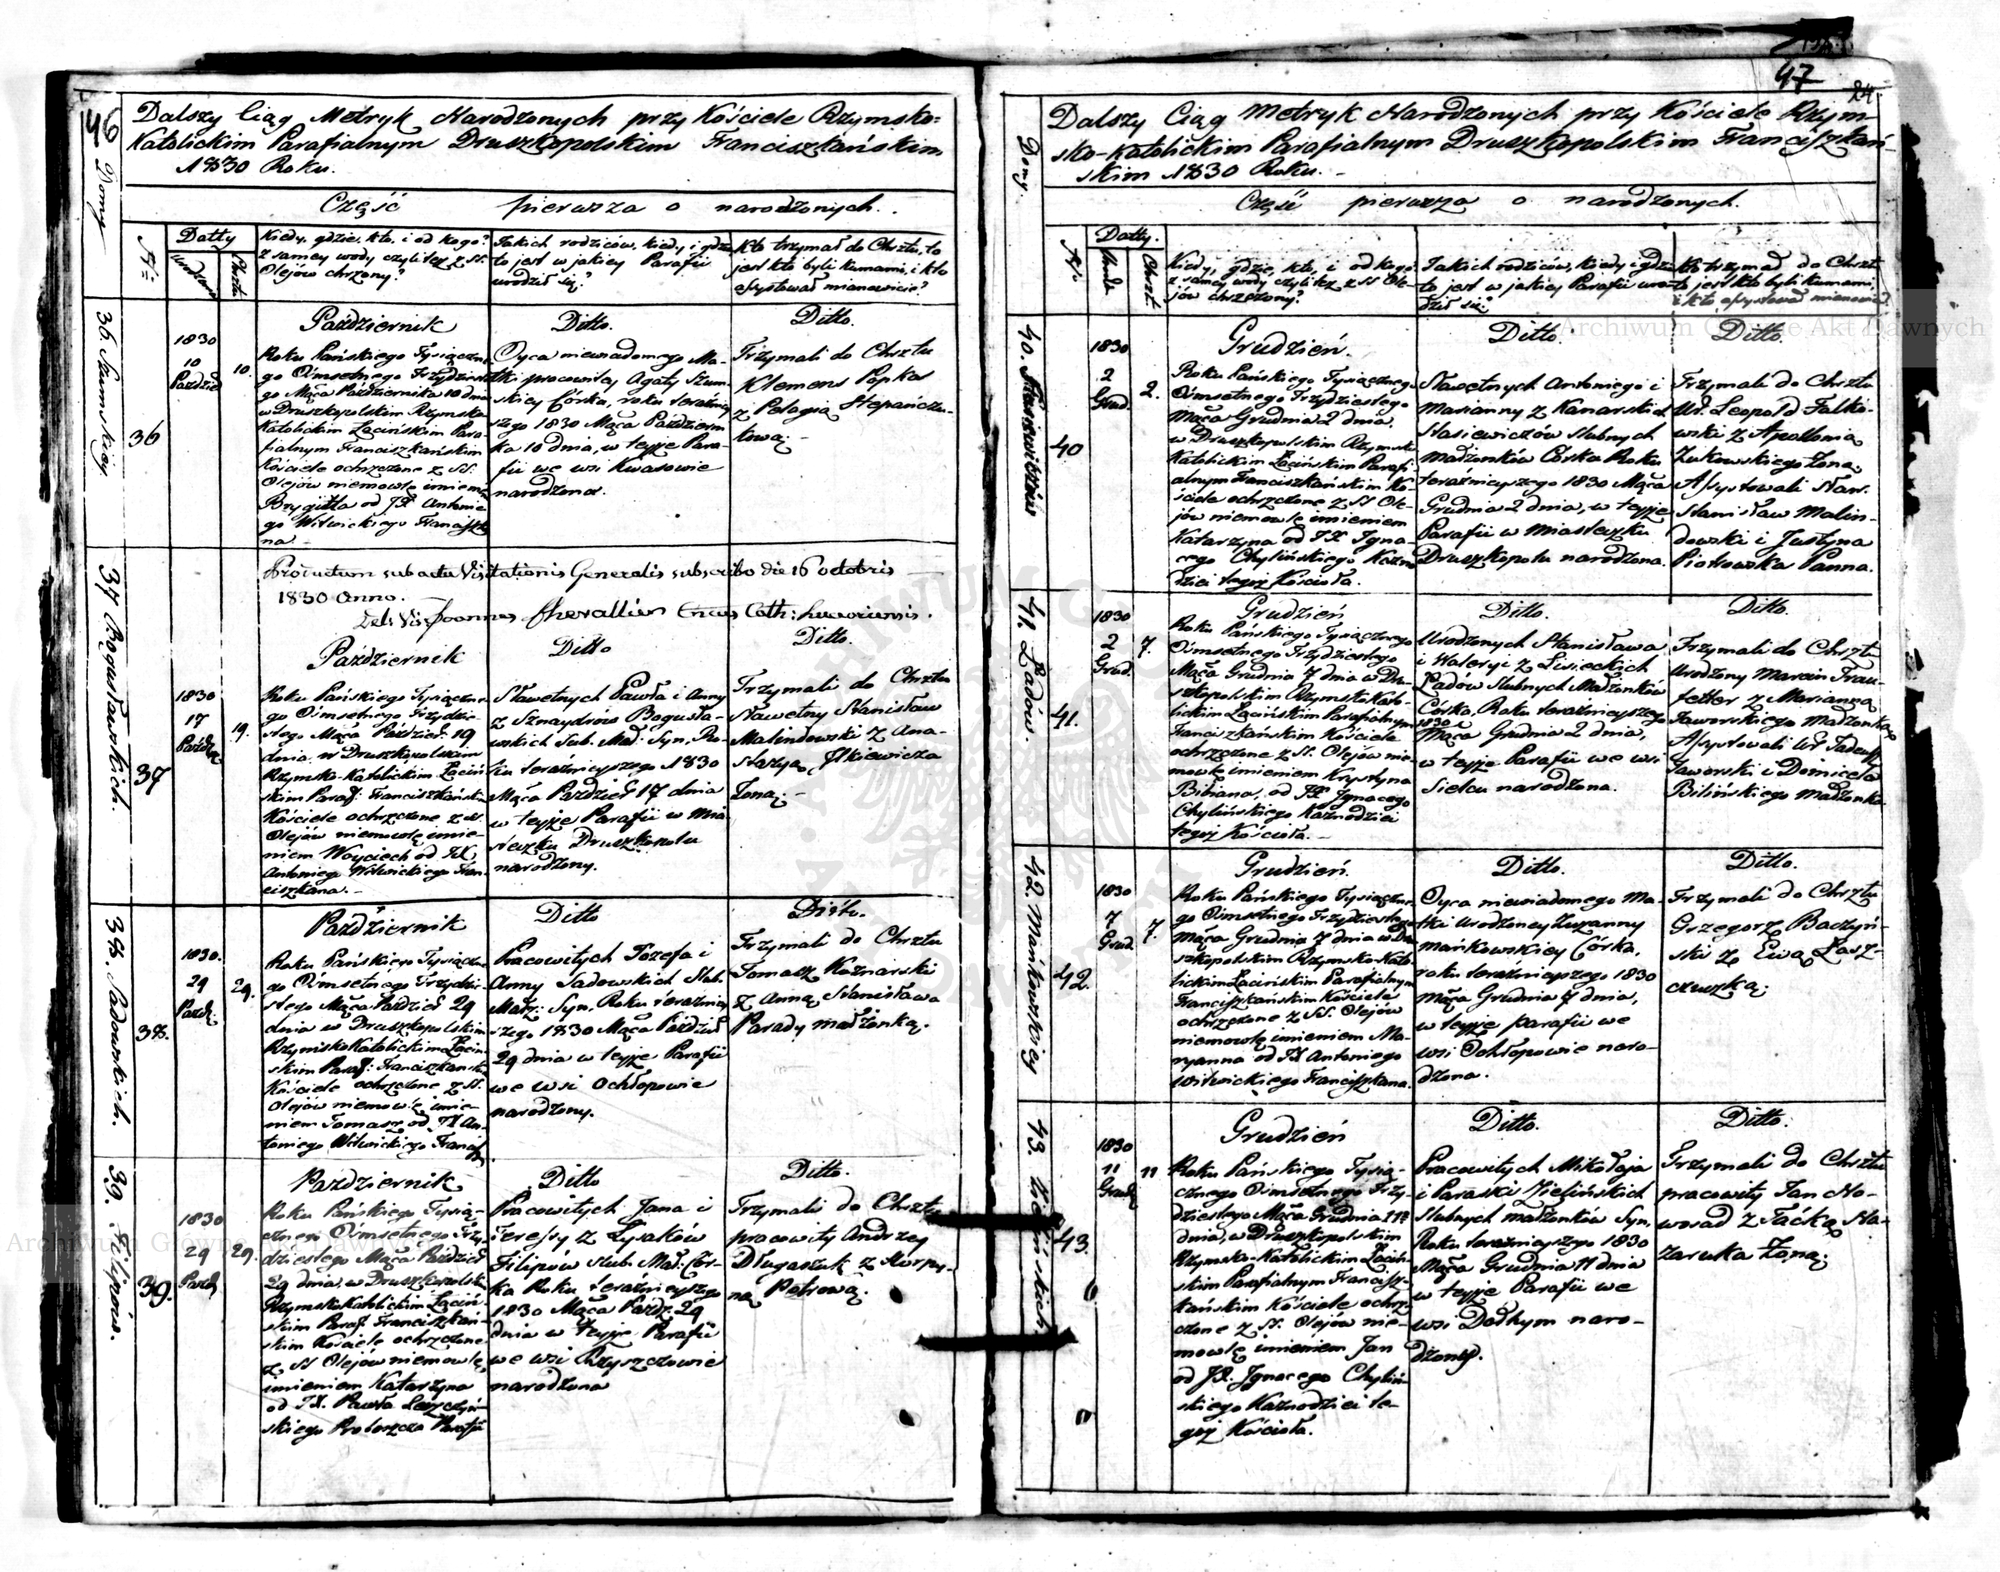 46
Dalszy Ciąg Metryk Narodzonych przy Kościele Rzymsko-
Katolickim Parafialnym Druszkopolskim Franciszkańskim
1830 Roku.
Domy
Część pierwsza o narodzonych.
Datty
Chrztu
Kiedy, gdzie, kto, i od kogo?
z samey wody czyli też z SS.
Olejów chrzczony?
Jakich rodziców, kiedy i gdzie
to jest w jakiey Parafii
urodził się?
Kto trzymał do Chrztu, to
jest kto byli Kumami, i kto
assystował mianowicie?
36. Szumskiey
36
1830
10
Paździer
10.
Październik
Roku Pańskiego Tysiączne-
go Ośmsetnego Trzydziest
go Mąca Października 10 dnia
w Druszkopolskim Rzymsko
Katolickim Łacińskim Para-
fialnym Franciszkańskim
Kościele ochrzczone z SS.
Olejów niemowlę imieniem
Brygitta od JX Antonie-
go Witwickiego Franciszka-
na.
Ditto.
Oyca niewiadomego Ma-
tki pracowitey Agaty Szum-
skiey Córka, roku teraźniey
szego 1830 Mąca Październi
ka 10 dnia, w teyże Para-
fii we wsi Kwasowie
narodzona.
Ditto.
Trzymali do Chrztu
Klemens Popka
z Pelagią Stepańczu-
kową.
Productum sub actu Visitationis Generalis subscribo die 16 octobris
1830 Anno.
Joannes Chevallier Cath: Luceoriensis.
37 Bogusławskich.
37
1830
17
Paźdz
19.
Październik
Roku Pańskiego Tysiączne-
go Ośmsetnego Trzydzie-
stego Mąca Paździer. 19
dnia, w Druszkopolskim
Rzymsko-Katolickim Łaciń
skim Paraf: Franciszkańskim
Kościele ochrzczone z SS.
Olejów niemowlę imie-
niem Woyciech od JX
Antoniego Witwickiego Fran-
ciszkana.
Ditto
Sławetnych Pawła i Anny
z Sznaydrów Bogusła-
wskich Ślub. Mał: Syn, Ro-
ku teraźnieyszego 1830
Mąca Paździer 17 dnia
w teyże Parafii w Mia-
steczku Druszkopolu
narodzony.
Ditto.
Trzymali do Chrztu
Sławetny Stanisław
Malindowski z Ana-
stazyą Ilkiewicza
Żoną.
38. Sadowskich.
38.
1830.
29
Paźdz
29.
Październik
Roku Pańskiego Tysiączne-
go Ośmsetnego Trzydzie-
stego Mąca Paździer 29
dnia w Druszkopolskim
Rzymsko Katolickim Łaciń-
skim Paraf: Franciszkańskim
Kościele ochrzczone z SS.
Olejów niemowlę imie-
niem Tomasz, od JX An-
toniego Witwickiego Francisz
Ditto
Pracowitych Józefa i
Anny Sadowskich Ślub.
Małż: Syn, Roku teraźniey
szego 1830 Mąca Paździer
29 dnia w teyże Parafii
we wsi Ochłopowie
narodzony.
Ditto.
Trzymali do Chrztu
Tomasz Koznarski
z Anną Stanisława
Parady małżonką.
39. Filipów.
39.
1830
29
Paźdz
29.
Październik
Roku Pańskiego Tysią-
cznego Ośmsetnego Trzy-
dziestego Mąca Paździer
29 dnia, w Druszkopolskim
Rzymsko Katolickim Łaciń-
skim Paraf. Franciszkań-
skim Kościele ochrzczone
z SS Olejów niemowlę
imieniem Katarzyna
od JX. Pawła
skiego Proboszcza Parafii
Ditto
Pracowitych Jana i
Teressy z Łysaków
Filipów Ślub. Mał: Cór-
ka Roku teraźnieyszego
1830 Mąca Paźdz. 29
dnia w teyże Parafii
we wsi Rzyszczowie
narodzona
Ditto.
Trzymali do Chrztu
pracowity Andrzey
Długaszuk z
Piotrową.
47
24
Domy.
Dalszy Ciąg Metryk Narodzonych przy Kościele Rzym-
sko-Katolickim Parafialnym Druszkopolskim Franciszkań-
skim 1830 Roku.
Część pierwsza o narodzonych.
Datty.
Urodz
Chrzt.
Kiedy, gdzie, kto, i od kogo
z samey wody czyli też z SS Ole-
jów chrzczony?
Jakich rodziców, kiedy i gdzie
to jest w jakiey Parafii uro-
dził się?
Kto trzymał do Chrztu
to jest kto byli Kumami,
i kto assystował mianowicie?
40. Stasiewiczów
40
1830
2
Grud.
2.
Grudzień.
Roku Pańskiego Tysiącznego
Ośmsetnego Trzydziestego
Mąca Grudnia 2 dnia,
w Druszkopolskim Rzymsko
Katolickim Łacińskim Parafi-
alnym Franciszkańskim Ko-
ściele ochrzczone z SS Ole-
jów niemowlę imieniem
Katarzyna od JX Igna-
cego Chylińskiego Kazno-
dziei tegoż Kościoła.
Ditto.
Sławetnych Antoniego i
Marianny z Kanarskich
Stasiewiczów ślubnych
Małżonków Córka Roku
teraźnieyszego 1830 Mąca
Grudnia 2 dnia, w teyże
Parafii w miasteczku
Druszkopolu narodzona.
Ditto.
Trzymali do Chrztu
Ur. Leopold Falko-
wski z Apollonią
Żukowskiego Żoną.
Assystowali Sław.
Stanisław Malin-
dowski i Justyna
Piotrowska Panna.
41. Ładów.
41.
1830
2
Grud.
7.
Grudzień
Roku Pańskiego Tysiącznego
Ośmsetnego Trzydziestego
Mąca Grudnia 7 dnia w Dru-
szkopolskim Rzymsko Kato-
lickim Łacińskim Parafialnym
Franciszkańskim Kościele
ochrzczone z SS. Olejów nie-
mowlę imieniem Krystyna
Bibiana, od JX Ignacego
Chylińskiego Kaznodziei
tegoż Kościoła.
Ditto.
Urodzonych Stanisława
i Waleryi z Lisieckich
Ładów ślubnych Małżonków
Córka, Roku teraźnieyszego
1830
Mąca Grudnia 2 dnia,
w teyże Parafii we wsi
Sielcu narodzona.
Ditto.
Trzymali do Chrztu
Urodzony Marcin Frau-
fetter z Marianną
Jaworskiego Małżonką
Assystowali Ur Tadeusz
Jaworski i Domicela
Bilińskiego Małżonka.
42. Mańkowskiey
42.
1830
7
Grud.
7.
Grudzień.
Roku Pańskiego Tysiączne-
go Ośmsetnego Trzydziestego
Mąca Grudnia 7 dnia w Dru-
szkopolskim Rzymsko Kato-
lickim Łacińskim Parafialnym
Franciszkańskim Kościele
ochrzczone z SS. Olejów
niemowlę imieniem Ma-
ryanna od JX Antoniego
Witwickiego Franciszkana.
Ditto.
Oyca niewiadomego Ma-
tki Urodzoney Zuzanny
Mańkowskiey Córka,
roku teraźnieyszego 1830
Mąca Grudnia 7 dnia,
w teyże parafii we
wsi Ochłopowie naro-
dzona.
Ditto.
Trzymali do Chrztu
Grzegorz Baczyń-
ski z Ewą Łasz-
czuszką.
43. Zielińskich.
43.
1830
11
Grud
11
Grudzień
Roku Pańskiego Tysią-
cznego Ośmsetnego Trzy-
dziestego Mąca Grudnia 11
dnia, w Druszkopolskim
Rzymsko-Katolickim Łaciń-
skim Parafialnym Francisz-
kańskim Kościele ochrz-
czone z SS. Olejów nie-
mowlę imieniem Jan
od JX. Ignacego Chyliń-
skiego Kaznodziei te-
goż Kościoła.
Ditto.
Pracowitych Mikołaja
i Paraski Zielińskich
ślubnych małżonków Syn,
Roku teraźnieyszego 1830
Mąca Grudnia 11 dnia
w teyże Parafii we
wsi Dołhym naro-
dzony.
Ditto.
Trzymali do Chrztu
pracowity Jan No-
wosad z Taćką Na-
zaruka Żoną.
Archiwum Główne Akt Dawnych
Archiwum Główne Akt Dawnych